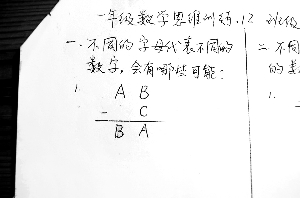 一年级数学思维训练.12
一.不同的字母代表不同的
数字,会有哪些可能:
1.
A B
- C
B A
二 不同
的
1.